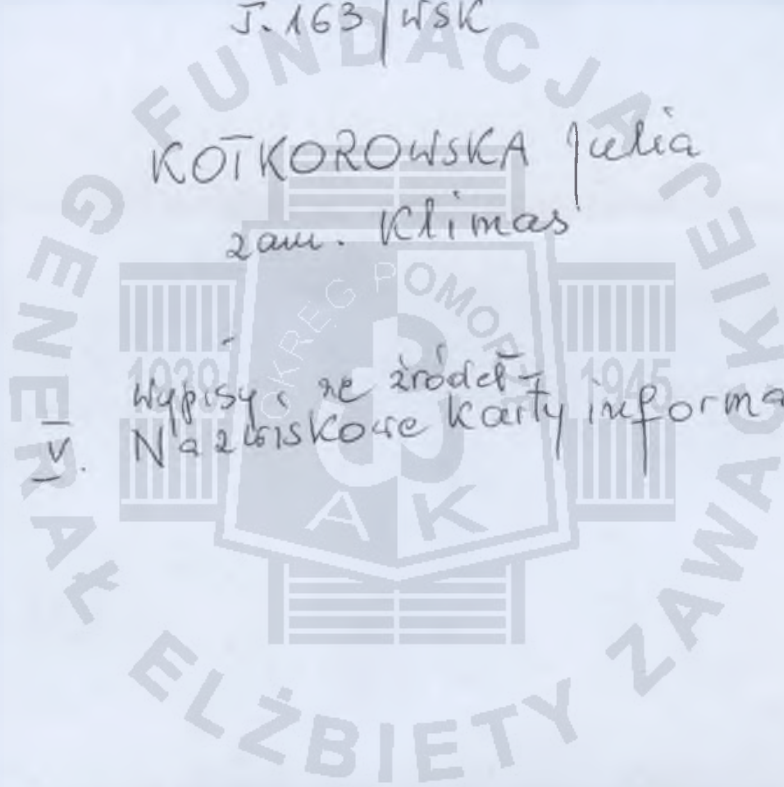 J. 163/WSK
KOTKOROWSKA Julia
zam. Klimas
Wypisy ze źródeł
V. Nazwiskowe karty informa
FUNDACJA GENERAŁ ELŻBIETY ZAWACKIEJ
OKRĘG POMORZE
1939 1945
AK